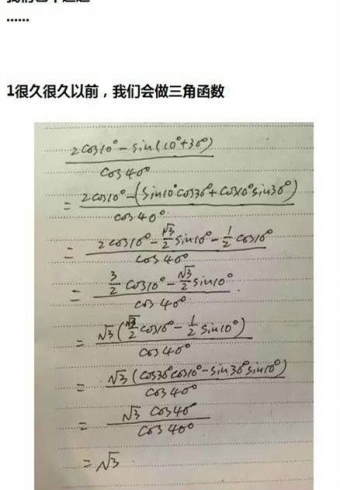 ……
1很久很久以前，我们会做三角函数
2cos10°-sin(10°+30°)
cos40°
= 2cos10°-(sin10°cos30°+cos10°sin30°)
cos40°
= 2cos10°-√3/2 sin10°-1/2 cos10°
cos40°
= 3/2 cos10°-√3/2 sin10°
cos40°
= √3(√3/2 cos10°-1/2 sin10°)
cos40°
= √3(cos30°cos10°-sin30°sin10°)
cos40°
= √3 cos40°
cos40°
= √3